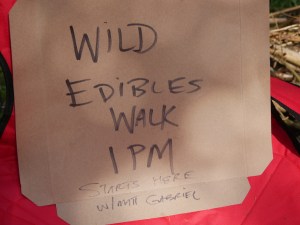 WILD
EDIBLES
WALK
1 PM
STARTS HERE
W/ GABRIEL